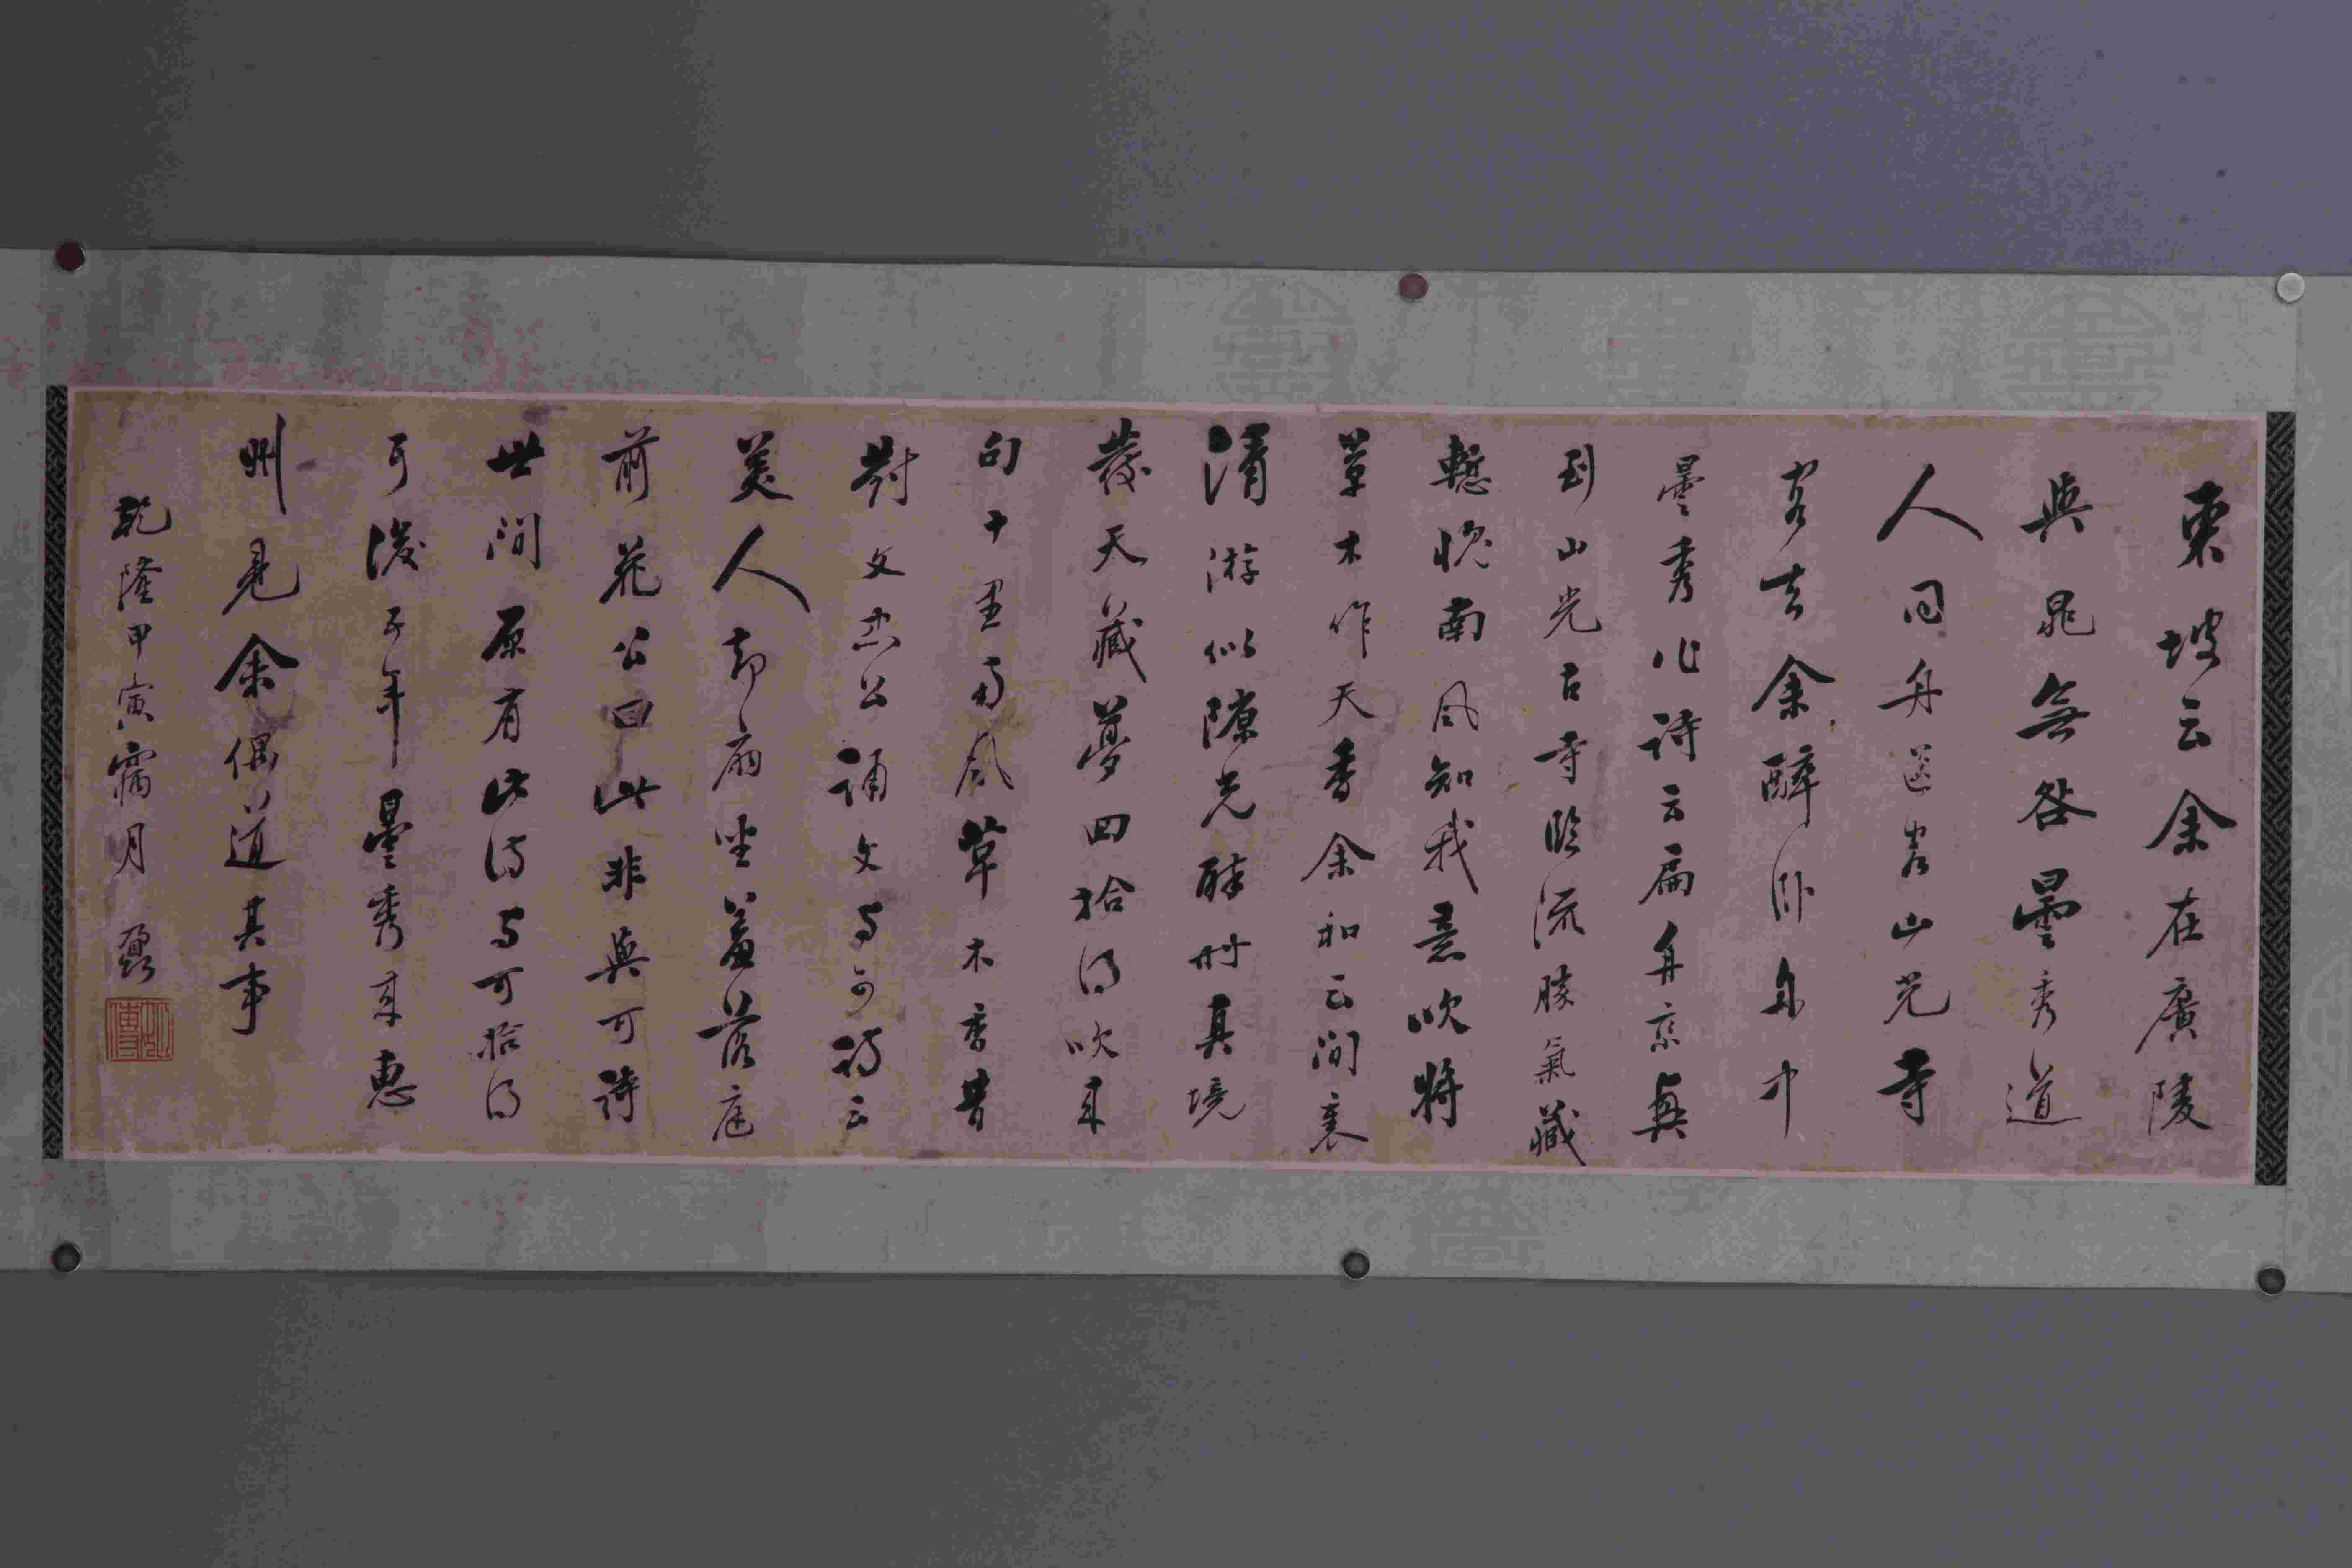 東坡云余在廣陵
與晁無咎曇秀道
人同舟送客山光寺
客去余醉臥舟中
曇秀作詩云扁舟乘興
到山光古寺臨流勝氣藏
慙愧南風知我意吹將
草木作天香余和云閒裏
清游似隙光醉時真境
發天藏夢回拾得吹來
句十里南風草木香昔
對文忠公誦文與可詩云
美人却扇坐羞落庭
前花公曰此非與可詩
世間原有此詩與可拾得
耳後五年曇秀來惠
州見余偶道其事
乾隆甲寅霜月